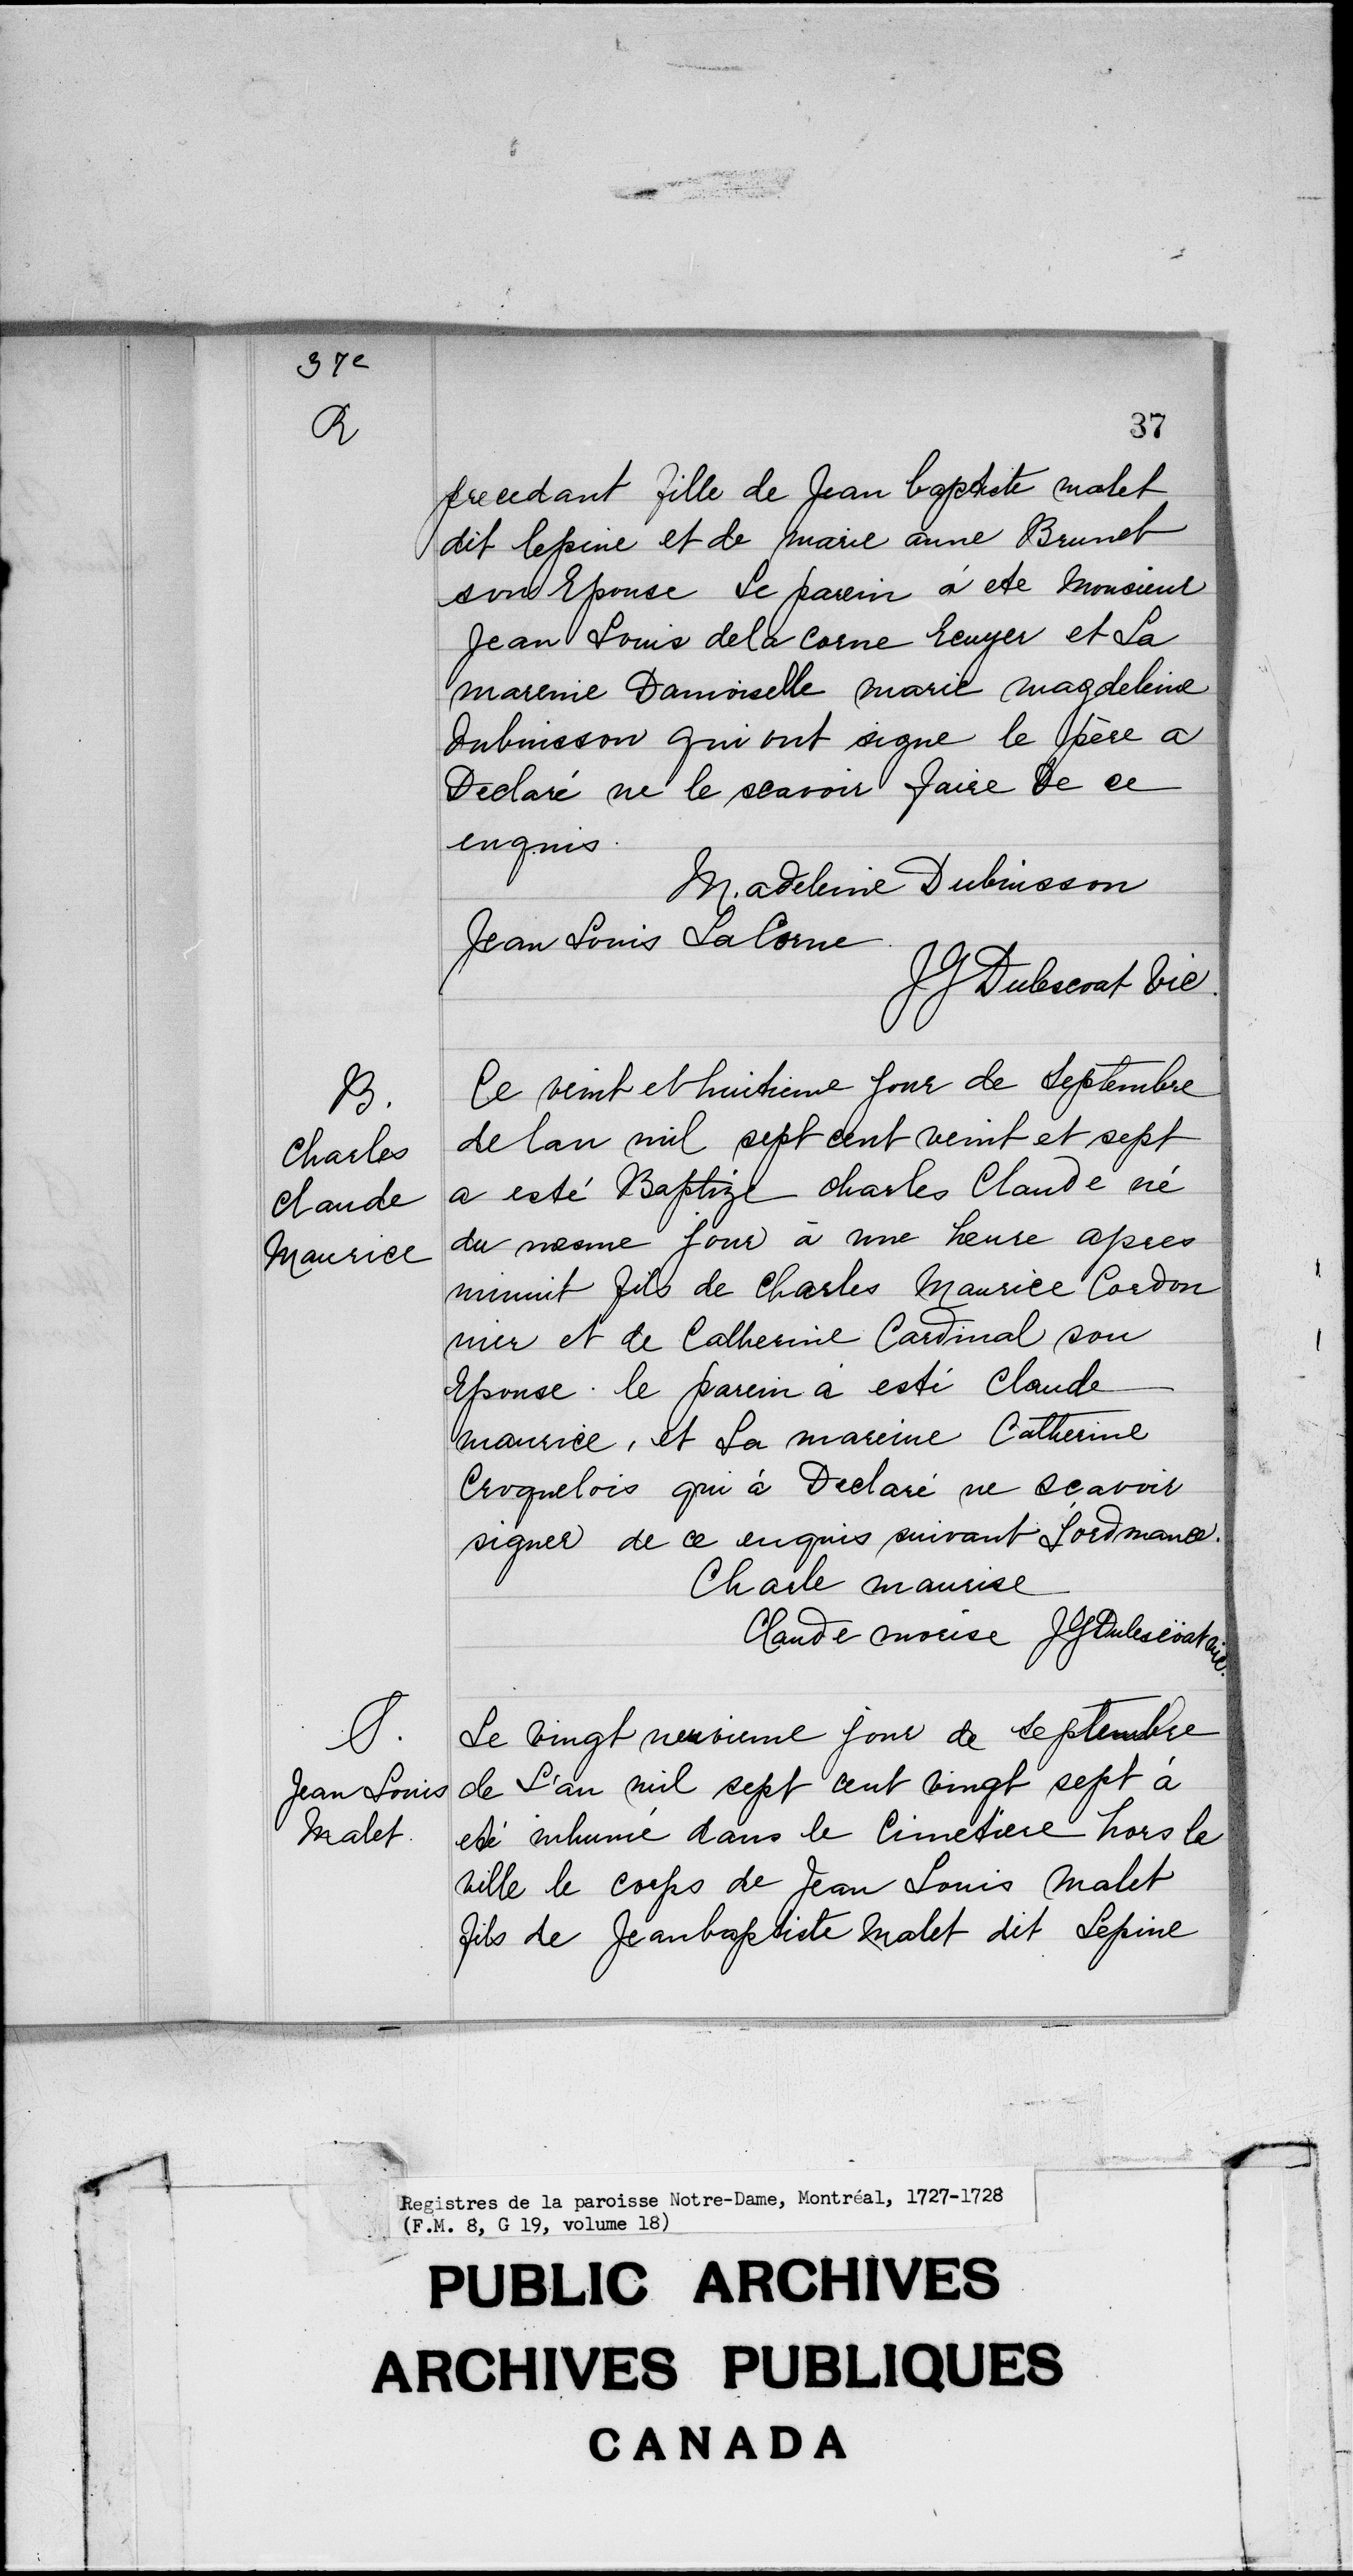 37e
R
37
precedant fille de Jean baptiste malet
dit lepine et de marie anne Brunet
son Epouse Le parein à ete Monsieur
Jean Louis dela Corne Ecuyer et La
mareine Damoiselle marie magdeleine
dubuisson qui ont signe le père a
Declaré ne le scavoir faire De ce
enquis.
M.adeleine Dubuisson
Jean Louis LaCorne
JG Dulescoat Vic.
B.
Charles
Claude
Maurice
Ce veint et huitieme jour de Septembre
de lan mil sept cent veint et sept
a esté Baptize charles Claude né
du mesme jour à une heure apres
minuit fils de Charles Maurice Cordon
nier et de Catherine Cardinal son
Epouse. le parein à esté Claude
maurice, et La mareine Catherine
Croquelois qui à Declaré ne scavoir
signer de ce enquis suivant L'ordmance.
Charle maurise
Claude morise JGDulescöat vic.
S.
Jean Louis
Malet.
Le vingt neuvieme jour de Septembre
de L'an mil sept cent vingt sept à
eté inhumé dans le Cimetiere hors la
ville le corps de Jean Louis Malet
fils de Jeanbaptiste Malet dit Lépine
Registres de la paroisse Notre-Dame, Montréal, 1727-1728
(F.M. 8, G 19, volume 18)
PUBLIC ARCHIVES
ARCHIVES PUBLIQUES
CANADA